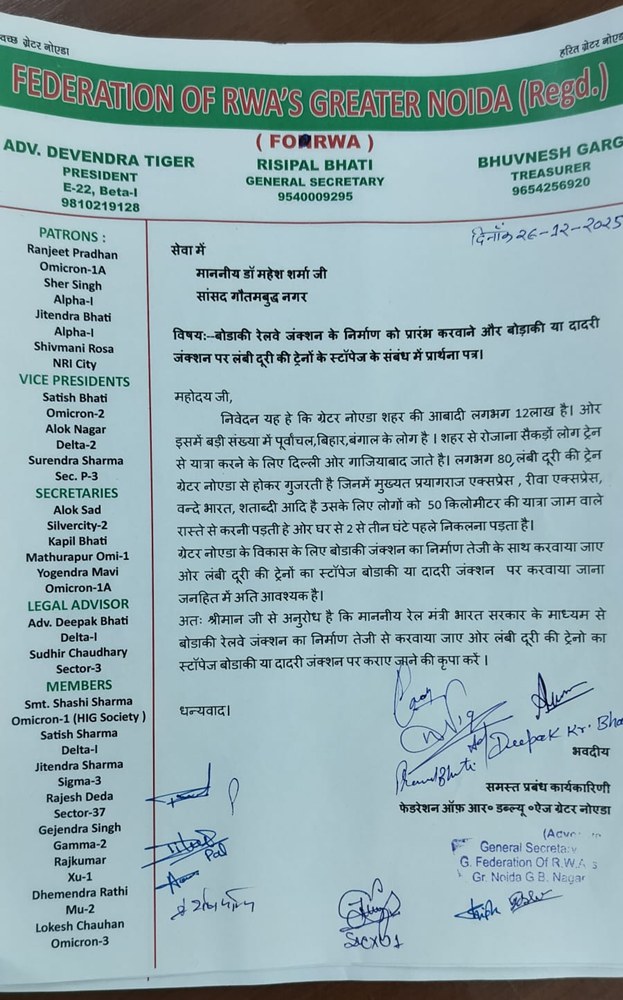 स्वच्छ ग्रेटर नोएडा
हरित ग्रेटर नोएडा
FEDERATION OF RWA'S GREATER NOIDA (Regd.)
ADV. DEVENDRA TIGER
PRESIDENT
E-22, Beta-I
9810219128
RISIPAL BHATI
GENERAL SECRETARY
9540009295
BHUVNESH GARG
TREASURER
9654256920
दिनाँक २६-12-2025
PATRONS :
Ranjeet Pradhan
Omicron-1A
Sher Singh
Alpha-I
Jitendra Bhati
Alpha-I
Shivmani Rosa
NRI City
VICE PRESIDENTS
Satish Bhati
Omicron-2
Alok Nagar
Delta-2
Surendra Sharma
Sec. P-3
SECRETARIES
Alok Sad
Silvercity-2
Kapil Bhati
Mathurapur Omi-1
Yogendra Mavi
Omicron-1A
LEGAL ADVISOR
Adv. Deepak Bhati
Delta-I
Sudhir Chaudhary
Sector-3
MEMBERS
Smt. Shashi Sharma
Omicron-1 (HIG Society )
Satish Sharma
Delta-I
Jitendra Sharma
Sigma-3
Rajesh Deda
Sector-37
Gejendra Singh
Gamma-2
Rajkumar
Xu-1
Dhemendra Rathi
Mu-2
Lokesh Chauhan
Omicron-3
सेवा में
माननीय डॉ महेश शर्मा जी
सांसद गौतमबुद्ध नगर
विषय:--बोडाकी रेलवे जंक्शन के निर्माण को प्रारंभ करवाने और बोड़ाकी या दादरी
जंक्शन पर लंबी दूरी की ट्रेनों के स्टॉपेज के संबंध में प्रार्थना पत्र।
महोदय जी,
निवेदन यह हे कि ग्रेटर नोएडा शहर की आबादी लगभग 12लाख है। ओर
इसमें बड़ी संख्या में पूर्वांचल,बिहार,बंगाल के लोग है । शहर से रोजाना सैकड़ों लोग ट्रेन
से यात्रा करने के लिए दिल्ली ओर गाजियाबाद जाते है। लगभग 80,लंबी दूरी की ट्रेन
ग्रेटर नोएडा से होकर गुजरती है जिनमें मुख्यत प्रयागराज एक्सप्रेस , रीवा एक्सप्रेस,
वन्दे भारत, शताब्दी आदि है उसके लिए लोगों को 50 किलोमीटर की यात्रा जाम वाले
रास्ते से करनी पड़ती हे ओर घर से 2 से तीन घंटे पहले निकलना पड़ता है।
ग्रेटर नोएडा के विकास के लिए बोडाकी जंक्शन का निर्माण तेजी के साथ करवाया जाए
ओर लंबी दूरी की ट्रेनों का स्टॉपेज बोडाकी या दादरी जंक्शन पर करवाया जाना
जनहित में अति आवश्यक है।
अतः श्रीमान जी से अनुरोध है कि माननीय रेल मंत्री भारत सरकार के माध्यम से
बोडाकी रेलवे जंक्शन का निर्माण तेजी से करवाया जाए ओर लंबी दूरी की ट्रेनो का
स्टॉपेज बोडाकी या दादरी जंक्शन पर कराए जाने की कृपा करें ।
धन्यवाद।
Deepak Kr. Bha
भवदीय
समस्त प्रबंध कार्यकारिणी
फेडरेशन ऑफ़ आर० डब्ल्यू ०ऐज ग्रेटर नोएडा
General Secretary
G. Federation Of R.W.A's
Gr. Noida G.B. Nagar